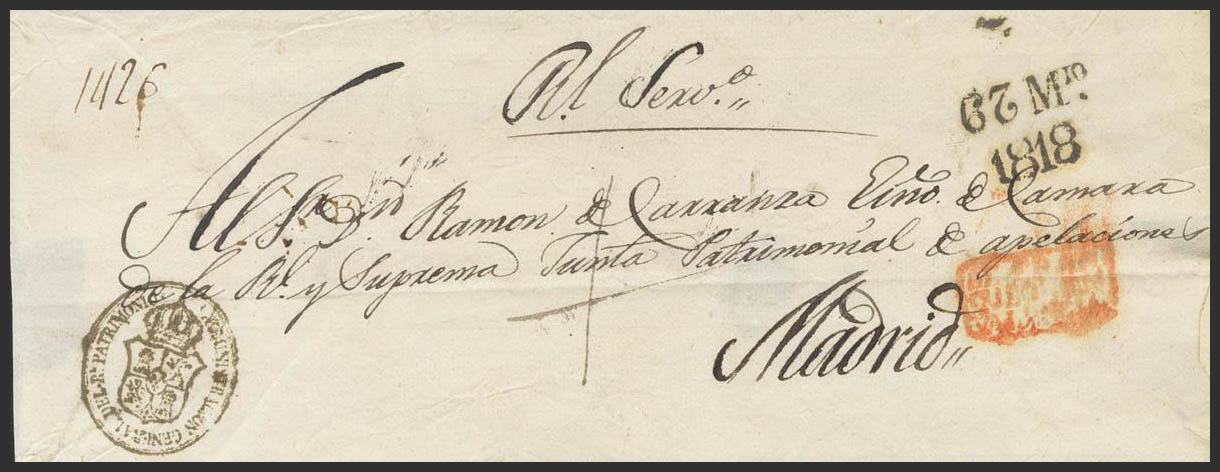 1426
Rl. Servo.
67 Mro.
1818
Al Sr. Dn. Ramon de Carranza Eſño. de Camara
de la Rl. y Suprema Junta Patrimonial de apelaciones
Madrid
GENERAL DEL Rl. PATRIMONIO